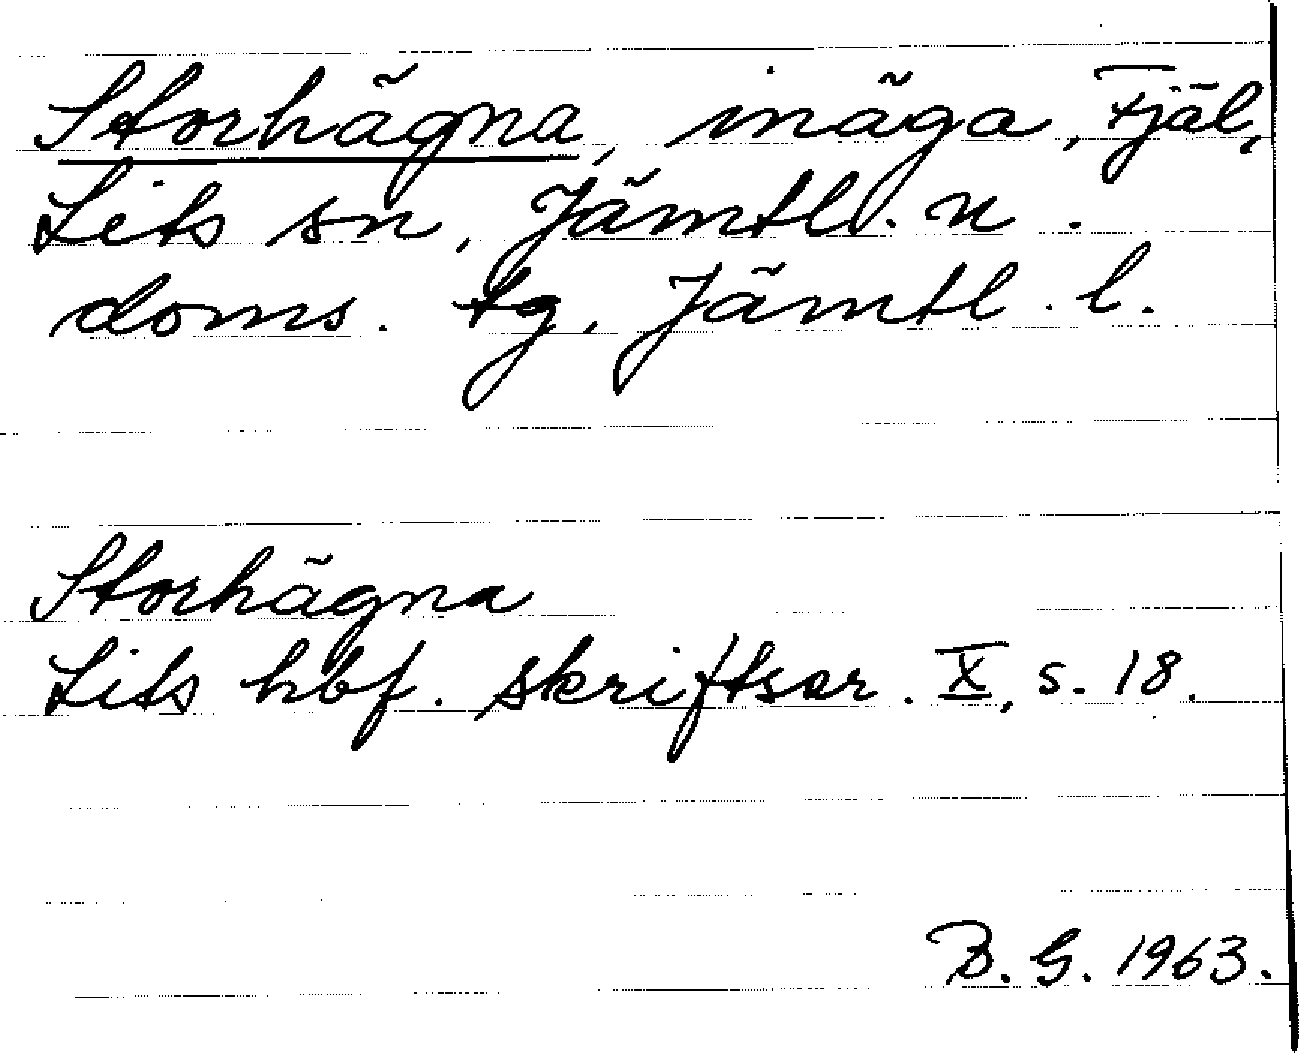 Storhägna, inäga, Fjäl,
Lits sn, Jämtl. n.
doms. tg, Jämtl. l.
Storhägna
Lits hbf. skriftser. X, s. 18.
B. G. 1963.